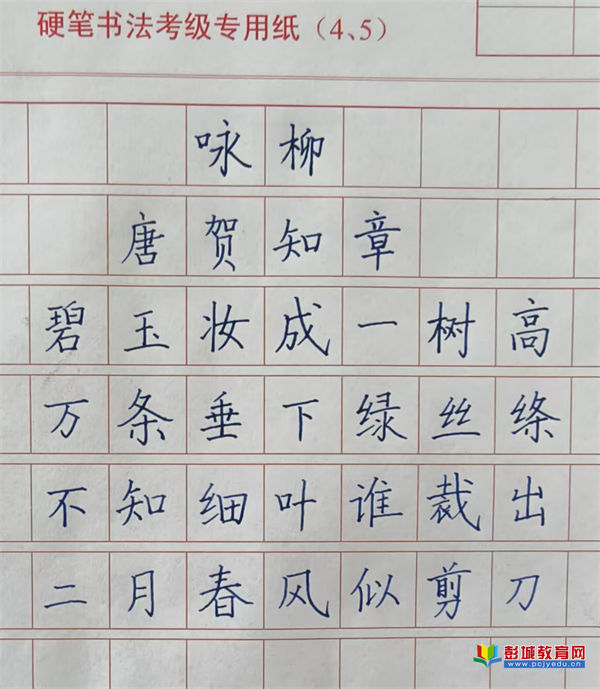 硬笔书法考级专用纸（4、5）
咏柳
唐贺知章
碧玉妆成一树高
万条垂下绿丝绦
不知细叶谁裁出
二月春风似剪刀
彭城教育网
www.pcjyedu.cn